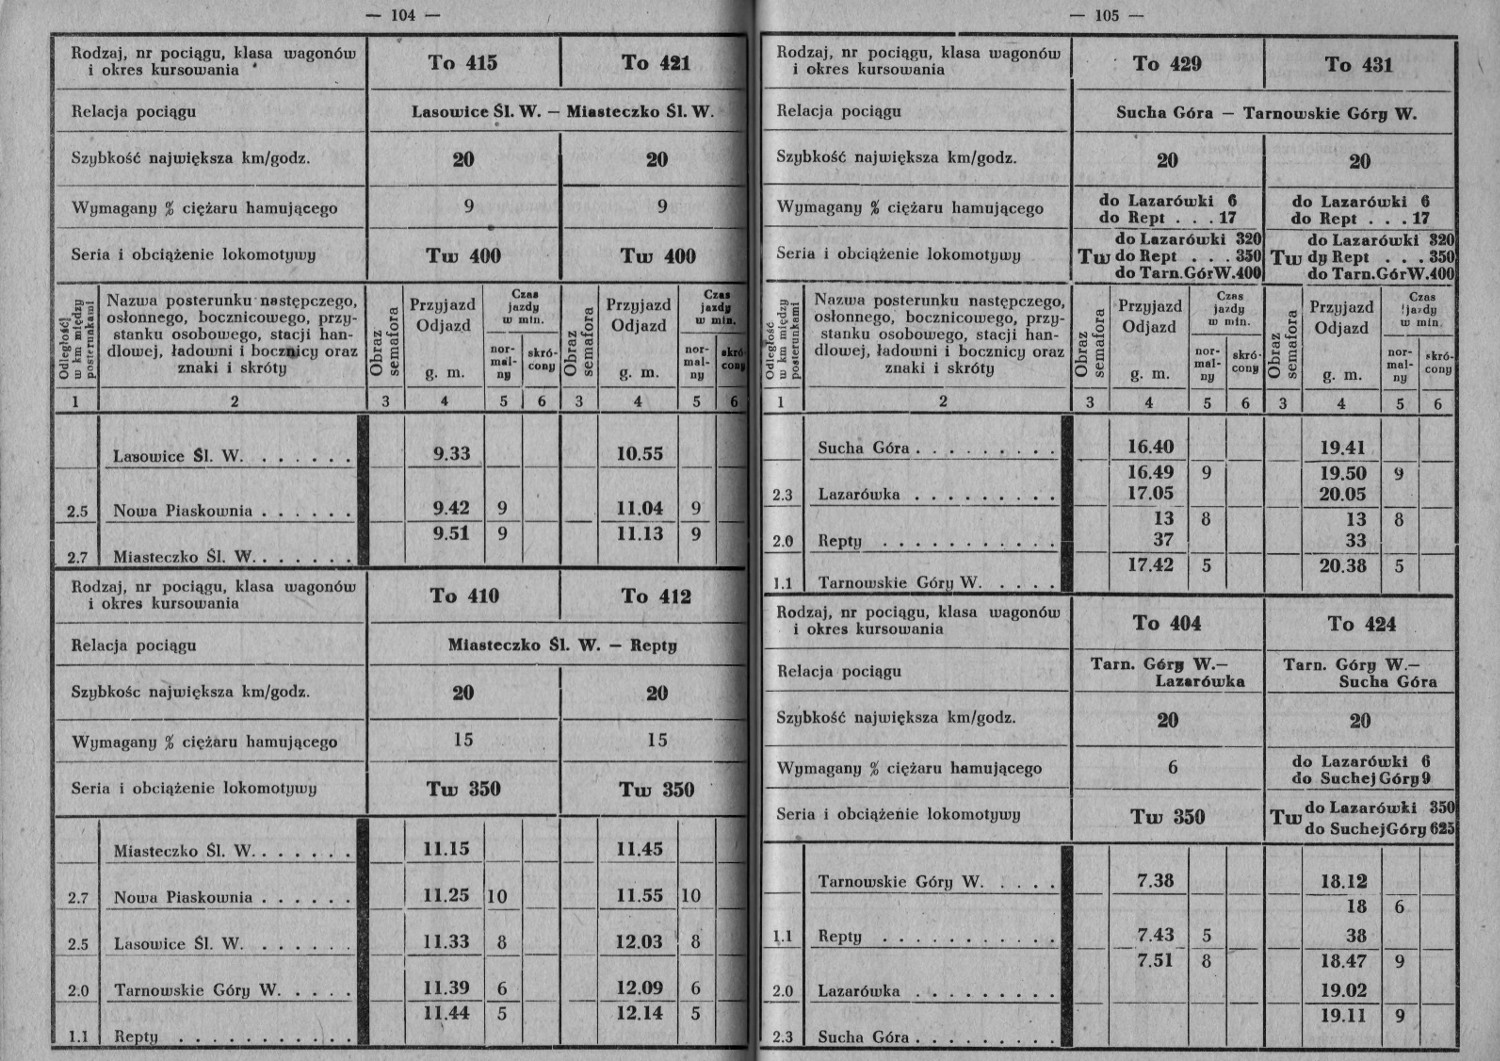 — 104 —
Rodzaj, nr pociągu, klasa wagonów
i okres kursowania
To 415
To 421
Relacja pociągu
Lasowice Śl. W. — Miasteczko Śl. W.
Szybkość największa km/godz.
20
20
Wymagany % ciężaru hamującego
9
9
Seria i obciążenie lokomotywy
Tw 400
Tw 400
Odległość
w km między
posterunkami
Nazwa posterunku następczego,
osłonnego, bocznicowego, przy-
stanku osobowego, stacji han-
dlowej, ładowni i bocznicy oraz
znaki i skróty
Obraz
semafora
Przyjazd
Odjazd
g. m.
Czas
jazdy
w min.
nor-
mal-
ny
skró-
cony
Obraz
semafora
Przyjazd
Odjazd
g. m.
Czas
jazdy
w min.
nor-
mal-
ny
skró-
cony
1 2 3 4 5 6 3 4 5 6
Lasowice Śl. W. . . . . . . 9.33 10.55
2.5 Nowa Piaskownia . . . . . . 9.42 9 11.04 9
9.51 9 11.13 9
2.7 Miasteczko Śl. W. . . . . . .
Rodzaj, nr pociągu, klasa wagonów
i okres kursowania
To 410
To 412
Relacja pociągu
Miasteczko Śl. W. — Repty
Szybkośc największa km/godz.
20
20
Wymagany % ciężaru hamującego
15
15
Seria i obciążenie lokomotywy
Tw 350
Tw 350
Miasteczko Śl. W. . . . . . . 11.15 11.45
2.7 Nowa Piaskownia . . . . . . 11.25 10 11.55 10
2.5 Lasowice Śl. W. . . . . . . 11.33 8 12.03 8
2.0 Tarnowskie Góry W. . . . . 11.39 6 12.09 6
11.44 5 12.14 5
1.1 Repty . . . . . . . . . . .
— 105 —
Rodzaj, nr pociągu, klasa wagonów
i okres kursowania
To 429
To 431
Relacja pociągu
Sucha Góra — Tarnowskie Góry W.
Szybkość największa km/godz.
20
20
Wymagany % ciężaru hamującego
do Lazarówki 6
do Rept . . . 17
do Lazarówki 6
do Rept . . . 17
Seria i obciążenie lokomotywy
Tw
do Lazarówki 320
do Rept . . . 350
do Tarn.GórW.400
Tw
do Lazarówki 320
dy Rept . . . 350
do Tarn.GórW.400
Odległość
w km między
posterunkami
Nazwa posterunku następczego,
osłonnego, bocznicowego, przy-
stanku osobowego, stacji han-
dlowej, ładowni i bocznicy oraz
znaki i skróty
Obraz
semafora
Przyjazd
Odjazd
g. m.
Czas
jazdy
w min.
nor-
mal-
ny
skró-
cony
Obraz
semafora
Przyjazd
Odjazd
g. m.
Czas
jazdy
w min.
nor-
mal-
ny
skró-
cony
1 2 3 4 5 6 3 4 5 6
Sucha Góra . . . . . . . . . 16.40 19.41
16.49 9 19.50 9
2.3 Lazarówka . . . . . . . . . 17.05 20.05
13 8 13 8
2.0 Repty . . . . . . . . . . . 37 33
17.42 5 20.38 5
1.1 Tarnowskie Góry W. . . . .
Rodzaj, nr pociągu, klasa wagonów
i okres kursowania
To 404
To 424
Relacja pociągu
Tarn. Góry W.—
Lazarówka
Tarn. Góry W.—
Sucha Góra
Szybkość największa km/godz.
20
20
Wymagany % ciężaru hamującego
6
do Lazarówki 6
do Suchej Góry 9
Seria i obciążenie lokomotywy
Tw 350
Tw
do Lazarówki 350
do SuchejGóry 625
Tarnowskie Góry W. . . . . 7.38 18.12
18 6
1.1 Repty . . . . . . . . . . . 7.43 5 38
7.51 8 18.47 9
2.0 Lazarówka . . . . . . . . . 19.02
19.11 9
2.3 Sucha Góra . . . . . . . . .